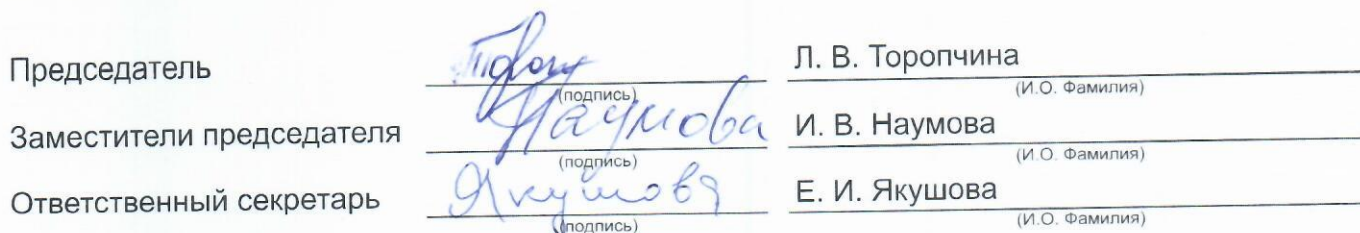 Председатель Л. В. Торопчина
(подпись) (И.О. Фамилия)
Заместители председателя Наумова И. В. Наумова
(подпись) (И.О. Фамилия)
Ответственный секретарь Якушова Е. И. Якушова
(подпись) (И.О. Фамилия)